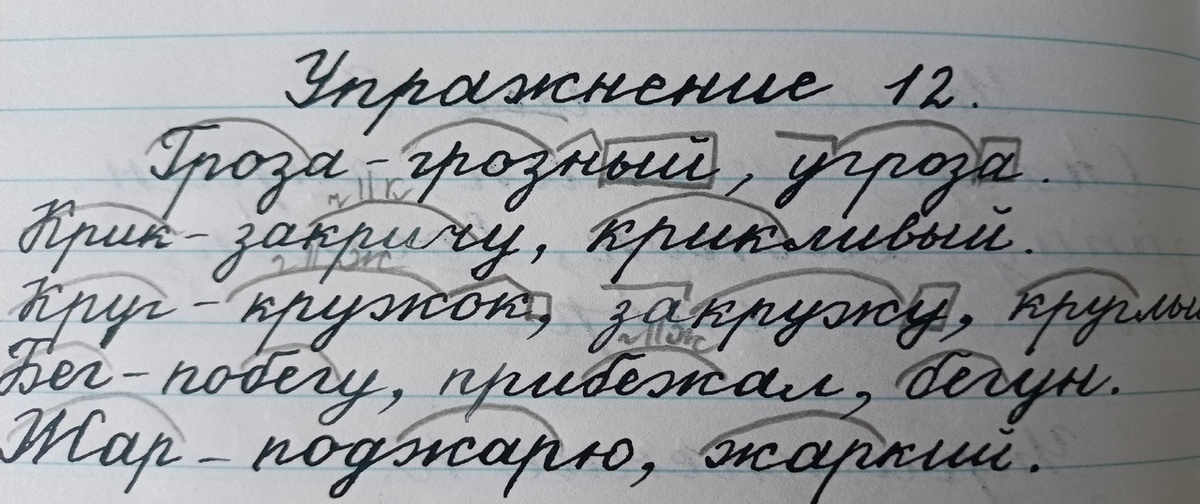 Упражнение 12.
Гроза - грозный, угроза.
Крик - закричу, крикливый.
Круг - кружок, закружу, круглый
Бег - побегу, прибежал, бегун.
Жар - поджарю, жаркий.